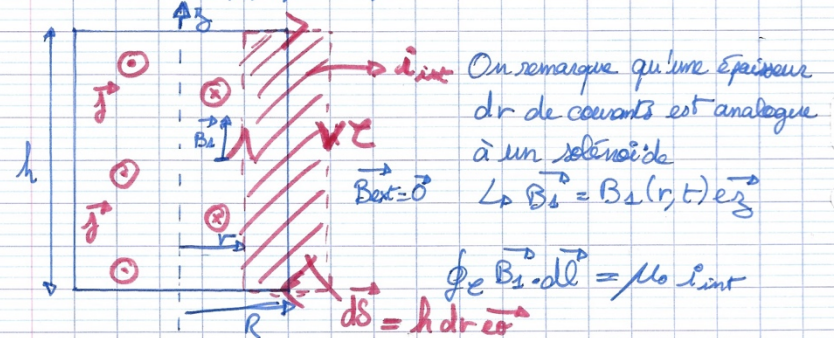 z
j
j
h
B₁
r
R
i int
τ
Bext = 0
dS = h dr eσ
On remarque qu'une épaisseur
dr de courants est analogue
à un solénoïde
↳ B₁ = B₁(r, t) ez
∮e B₁ · dl = μ₀ i int